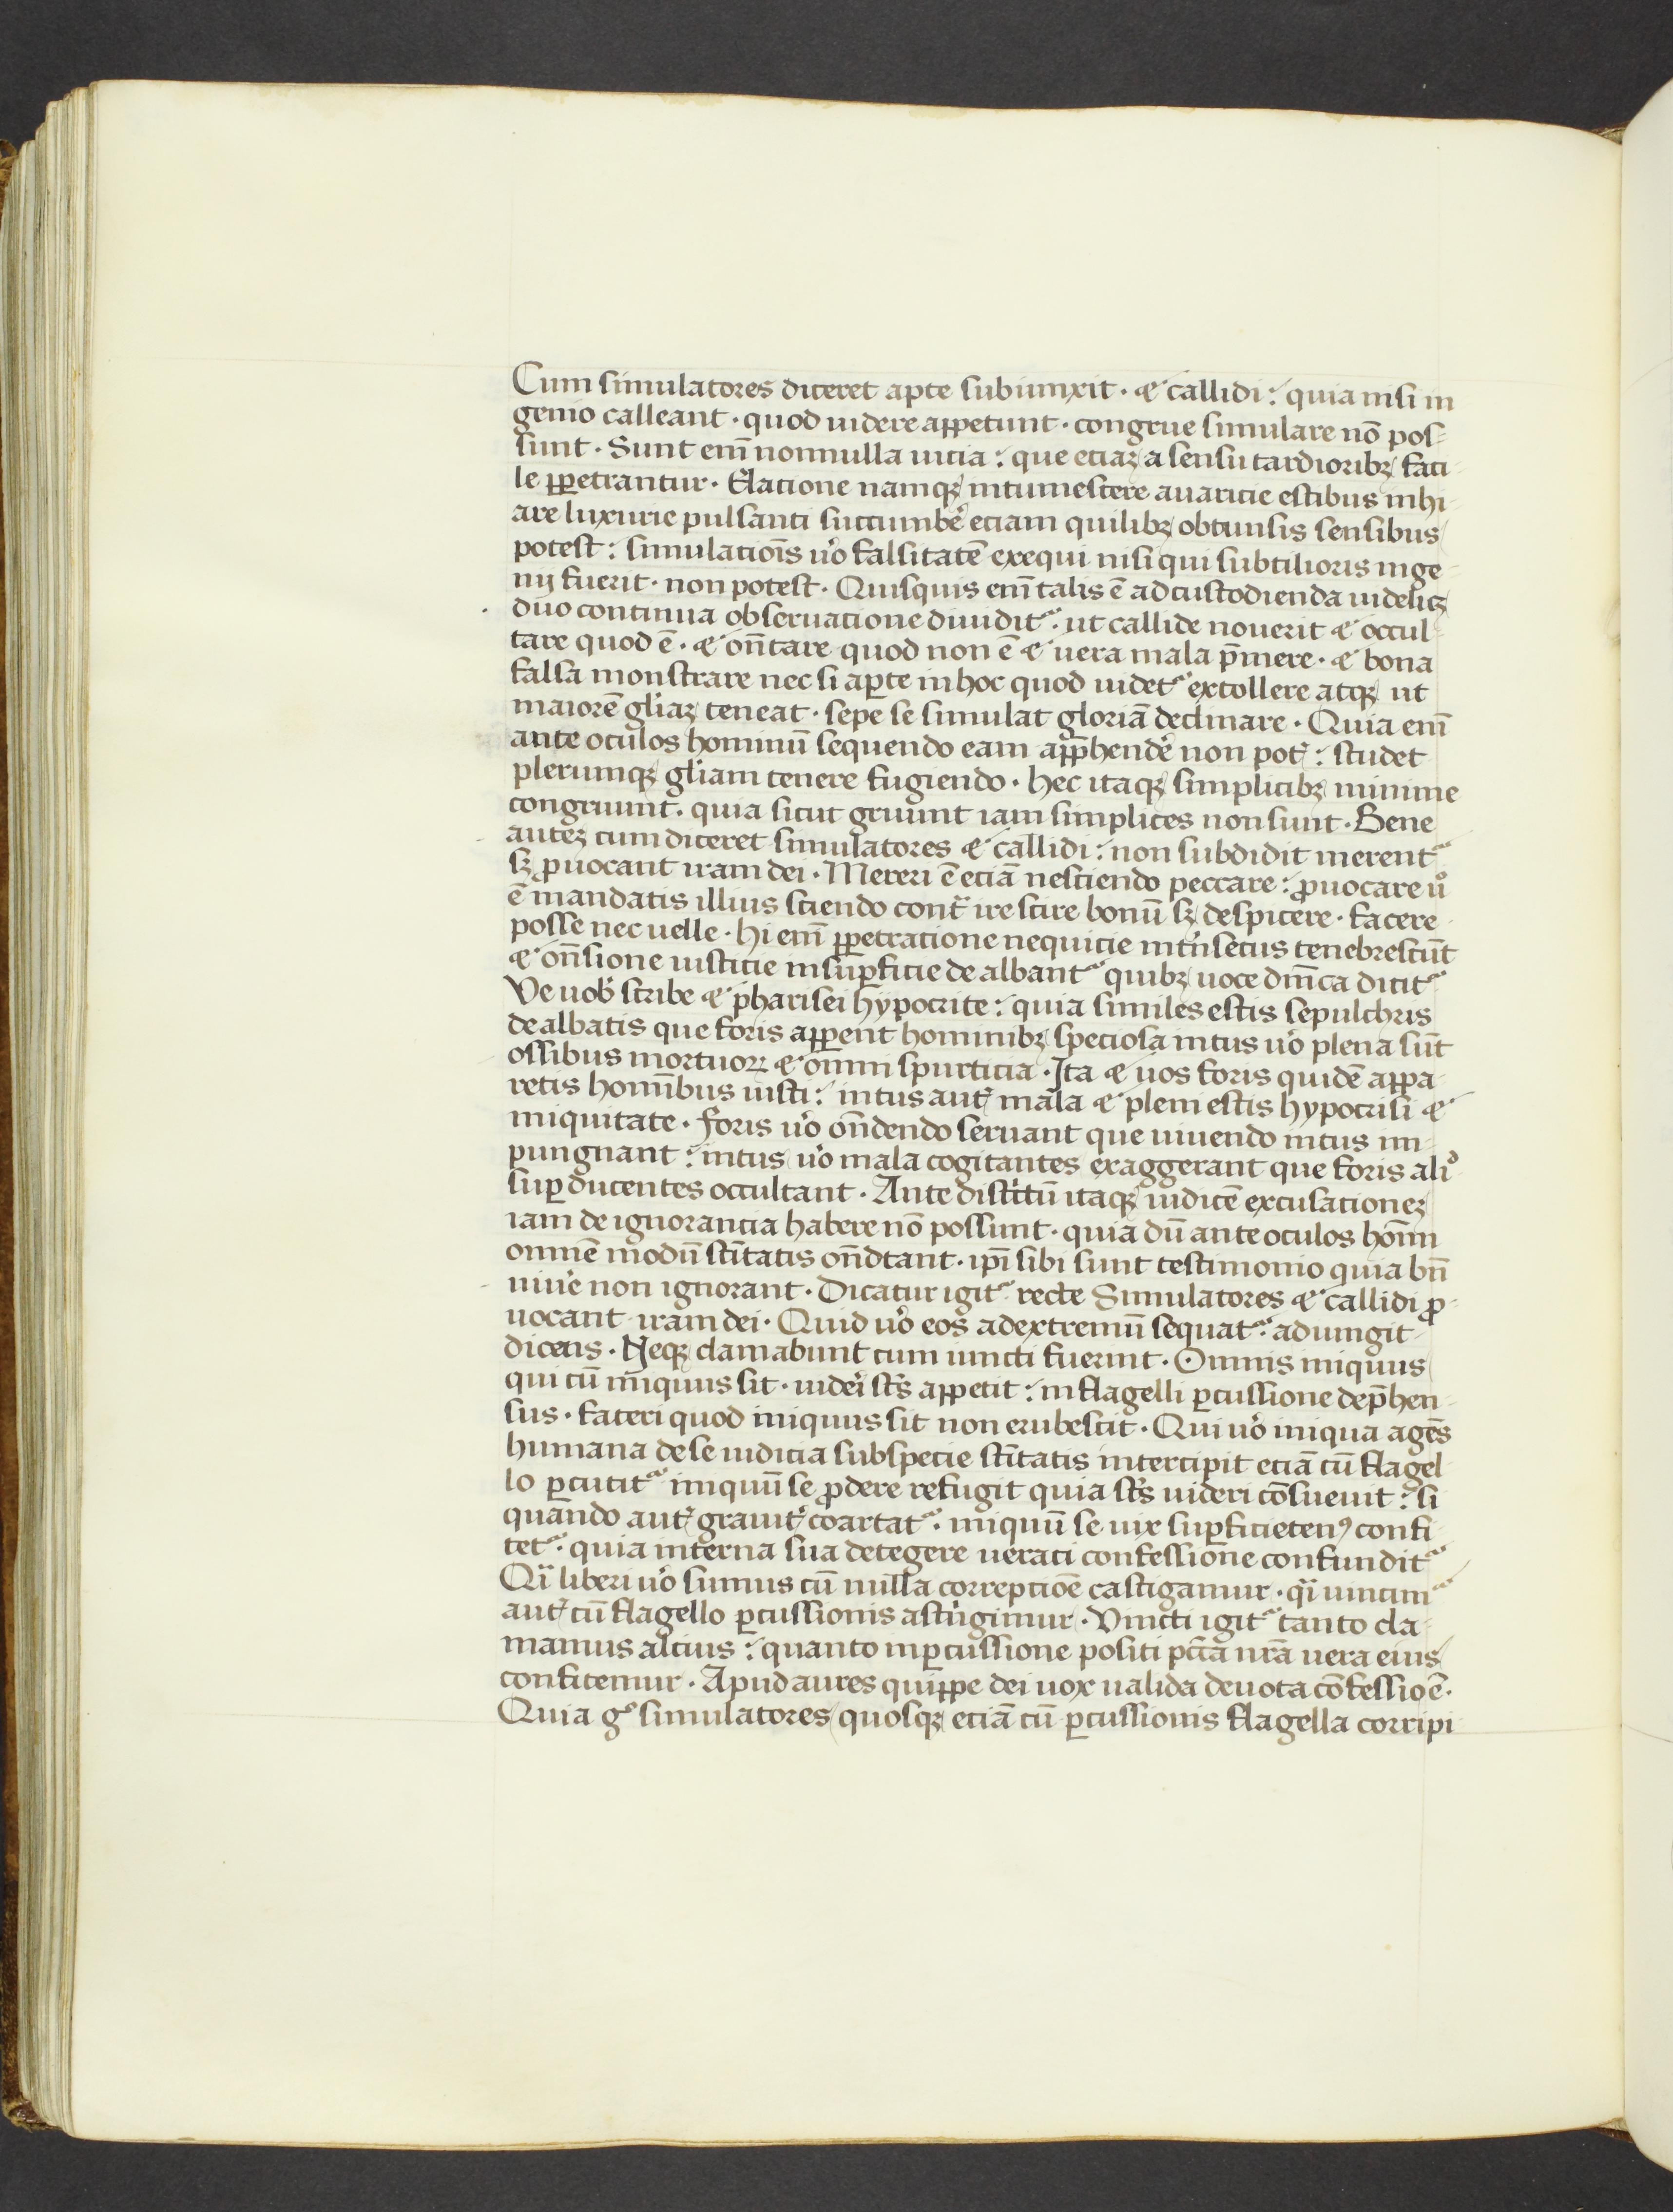 Cum simulatores diceret apte subiunxit · & callidi : quia nisi in
genio calleant · quod uidere appetunt · congrue simulare nō pos-
sunt · Sunt enī nonnulla uicia : que eciaꝫ a sensu tardioribꝫ faci-
le ꝑpetrantur · Elacione namqꝫ intumescere auaricie estibus inhi-
are luxurie pulsanti succumbe᷑ eciam quilibꝫ obtunsis sensibus
potest : simulacioīs u᷑o falsitatē exequi nisi qui subtilioris inge-
nij fuerit · non potest · Quisquis enī talis ē ad custodienda uidelicꝫ
duo continua obseruacione diuidit᷑ · ut callide nouerit & occul-
tare quod ē · & on̄tare quod non ē & uera mala p̄mere · & bona
falsa monstrare nec si aꝑte in hoc quod uidet᷑ extollere atqꝫ ut
maiorē gl᷑iaꝫ teneat · sepe se simulat gloriā declinare · Quia enī
ante oculos hominū sequendo eam app̄hende᷑ non pot᷑ : studet
plerumqꝫ gl᷑iam tenere fugiendo · hec itaqꝫ simplicibꝫ minime
congruunt · quia sicut gruunt iam simplices non sunt · Bene
auteꝫ cum diceret simulatores & callidi : non subdidit merent᷑
sꝫ ꝓuocant iram dei · Mereri ē eciā nesciendo peccare : ꝓuocare uͦ
ē mandatis illius sciendo cont᷑ ire scire bonū sꝫ despicere · facere
posse nec uelle · hi enī ꝑpetracione nequicie int᷑nsecus tenebrescūt
& on̄sione iusticie in suꝑficie de albant᷑ quibꝫ uoce dn̄ica dicit᷑
Ve uob᷑ scribe & pharisei hypocrite : quia similes estis sepulchris
de albatis que foris apꝑent hominibꝫ speciosa intus u᷑o plena sūt
ossibus mortuoꝝ & omni spurticia · Ita & uos foris quidē appa-
retis homībus iusti : intus aut᷑ mala & pleni estis hypocrisi &
iniquitate · foris u᷑o on̄dendo seruant que uiuendo intus im-
pungnant : intus u᷑o mala cogitantes exaggerant que foris aliͦ
suꝑ ducentes occultant · Ante distr᷑ctū itaqꝫ iudicē excusacioneꝫ
iam de ignorancia habere nō possunt · quia dū ante oculos hoīm
omnē modū scītatis on̄dtant · ipī sibi sunt testimonio quia bn̄
uiue᷑ non ignorant · Dicatur igit᷑ recte Simulatores & callidi ꝓ-
uocant iram dei · Quid u᷑o eos ad extremū sequat᷑ · adiungit
dicens · Neqꝫ clamabunt cum iuncti fuerint · Omnis iniquus
qui cū iniquus sit · uideri sc̄s appetit : in flagelli ꝑcussione dep̄hen-
sus · fateri quod iniquus sit non erubescit · Qui u᷑o iniqua agēs
humana de se iudicia sub specie scītatis intercipit eciā cū flagel
lo ꝑcutit᷑ iniquū se ꝓdere refugit quia sc̄s uideri cōsueuit : si
quando aut᷑ grauit᷑ coartat᷑ · iniquū se uix suꝑficieten⁹ confi-
tet᷑ · quia interna sua detegere ueraci confessione confundit᷑
Qi̅ liberi u᷑o sumus cū nulla correpcioē castigamur · qi̅ uincim᷑
aut᷑ cū flagello ꝑcussionis astr᷑gimur · Vincti igit᷑ tanto cla-
mamus alcius : quanto in ꝑcussione positi pc̄ta nr̄a uera eius
confitemur · Apud aures quippe dei uox ualida deuota cōfessio ē ·
Quia gͦ simulatores quosqꝫ eciā cū ꝑcussionis flagella corripi